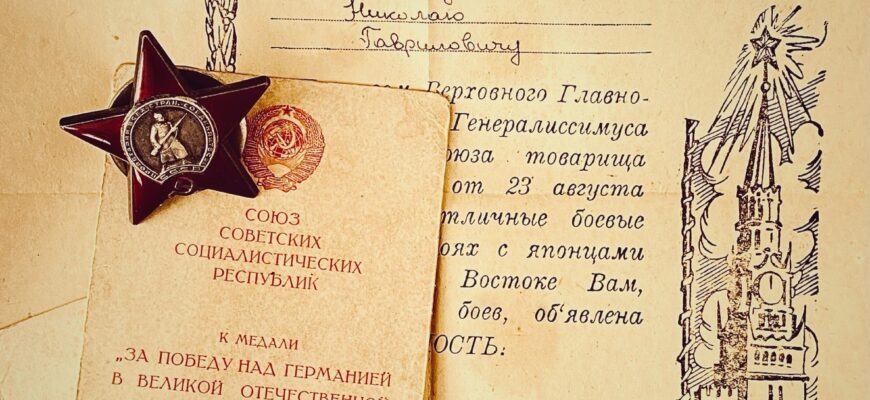 Николаю
Гавриловичу
Верховного Главно-
Генералиссимуса
товарища
от 23 августа
боевые
с японцами
Востоке Вам,
боев, об'явлена
ПРОЛЕТАРИИ ВСЕХ СТРАН, СОЕДИНЯЙТЕСЬ
СОЮЗ
СОВЕТСКИХ
СОЦИАЛИСТИЧЕСКИХ
РЕСПУБЛИК
К МЕДАЛИ
„ЗА ПОБЕДУ НАД ГЕРМАНИЕЙ
В ВЕЛИКОЙ ОТЕЧЕСТВЕННОЙ